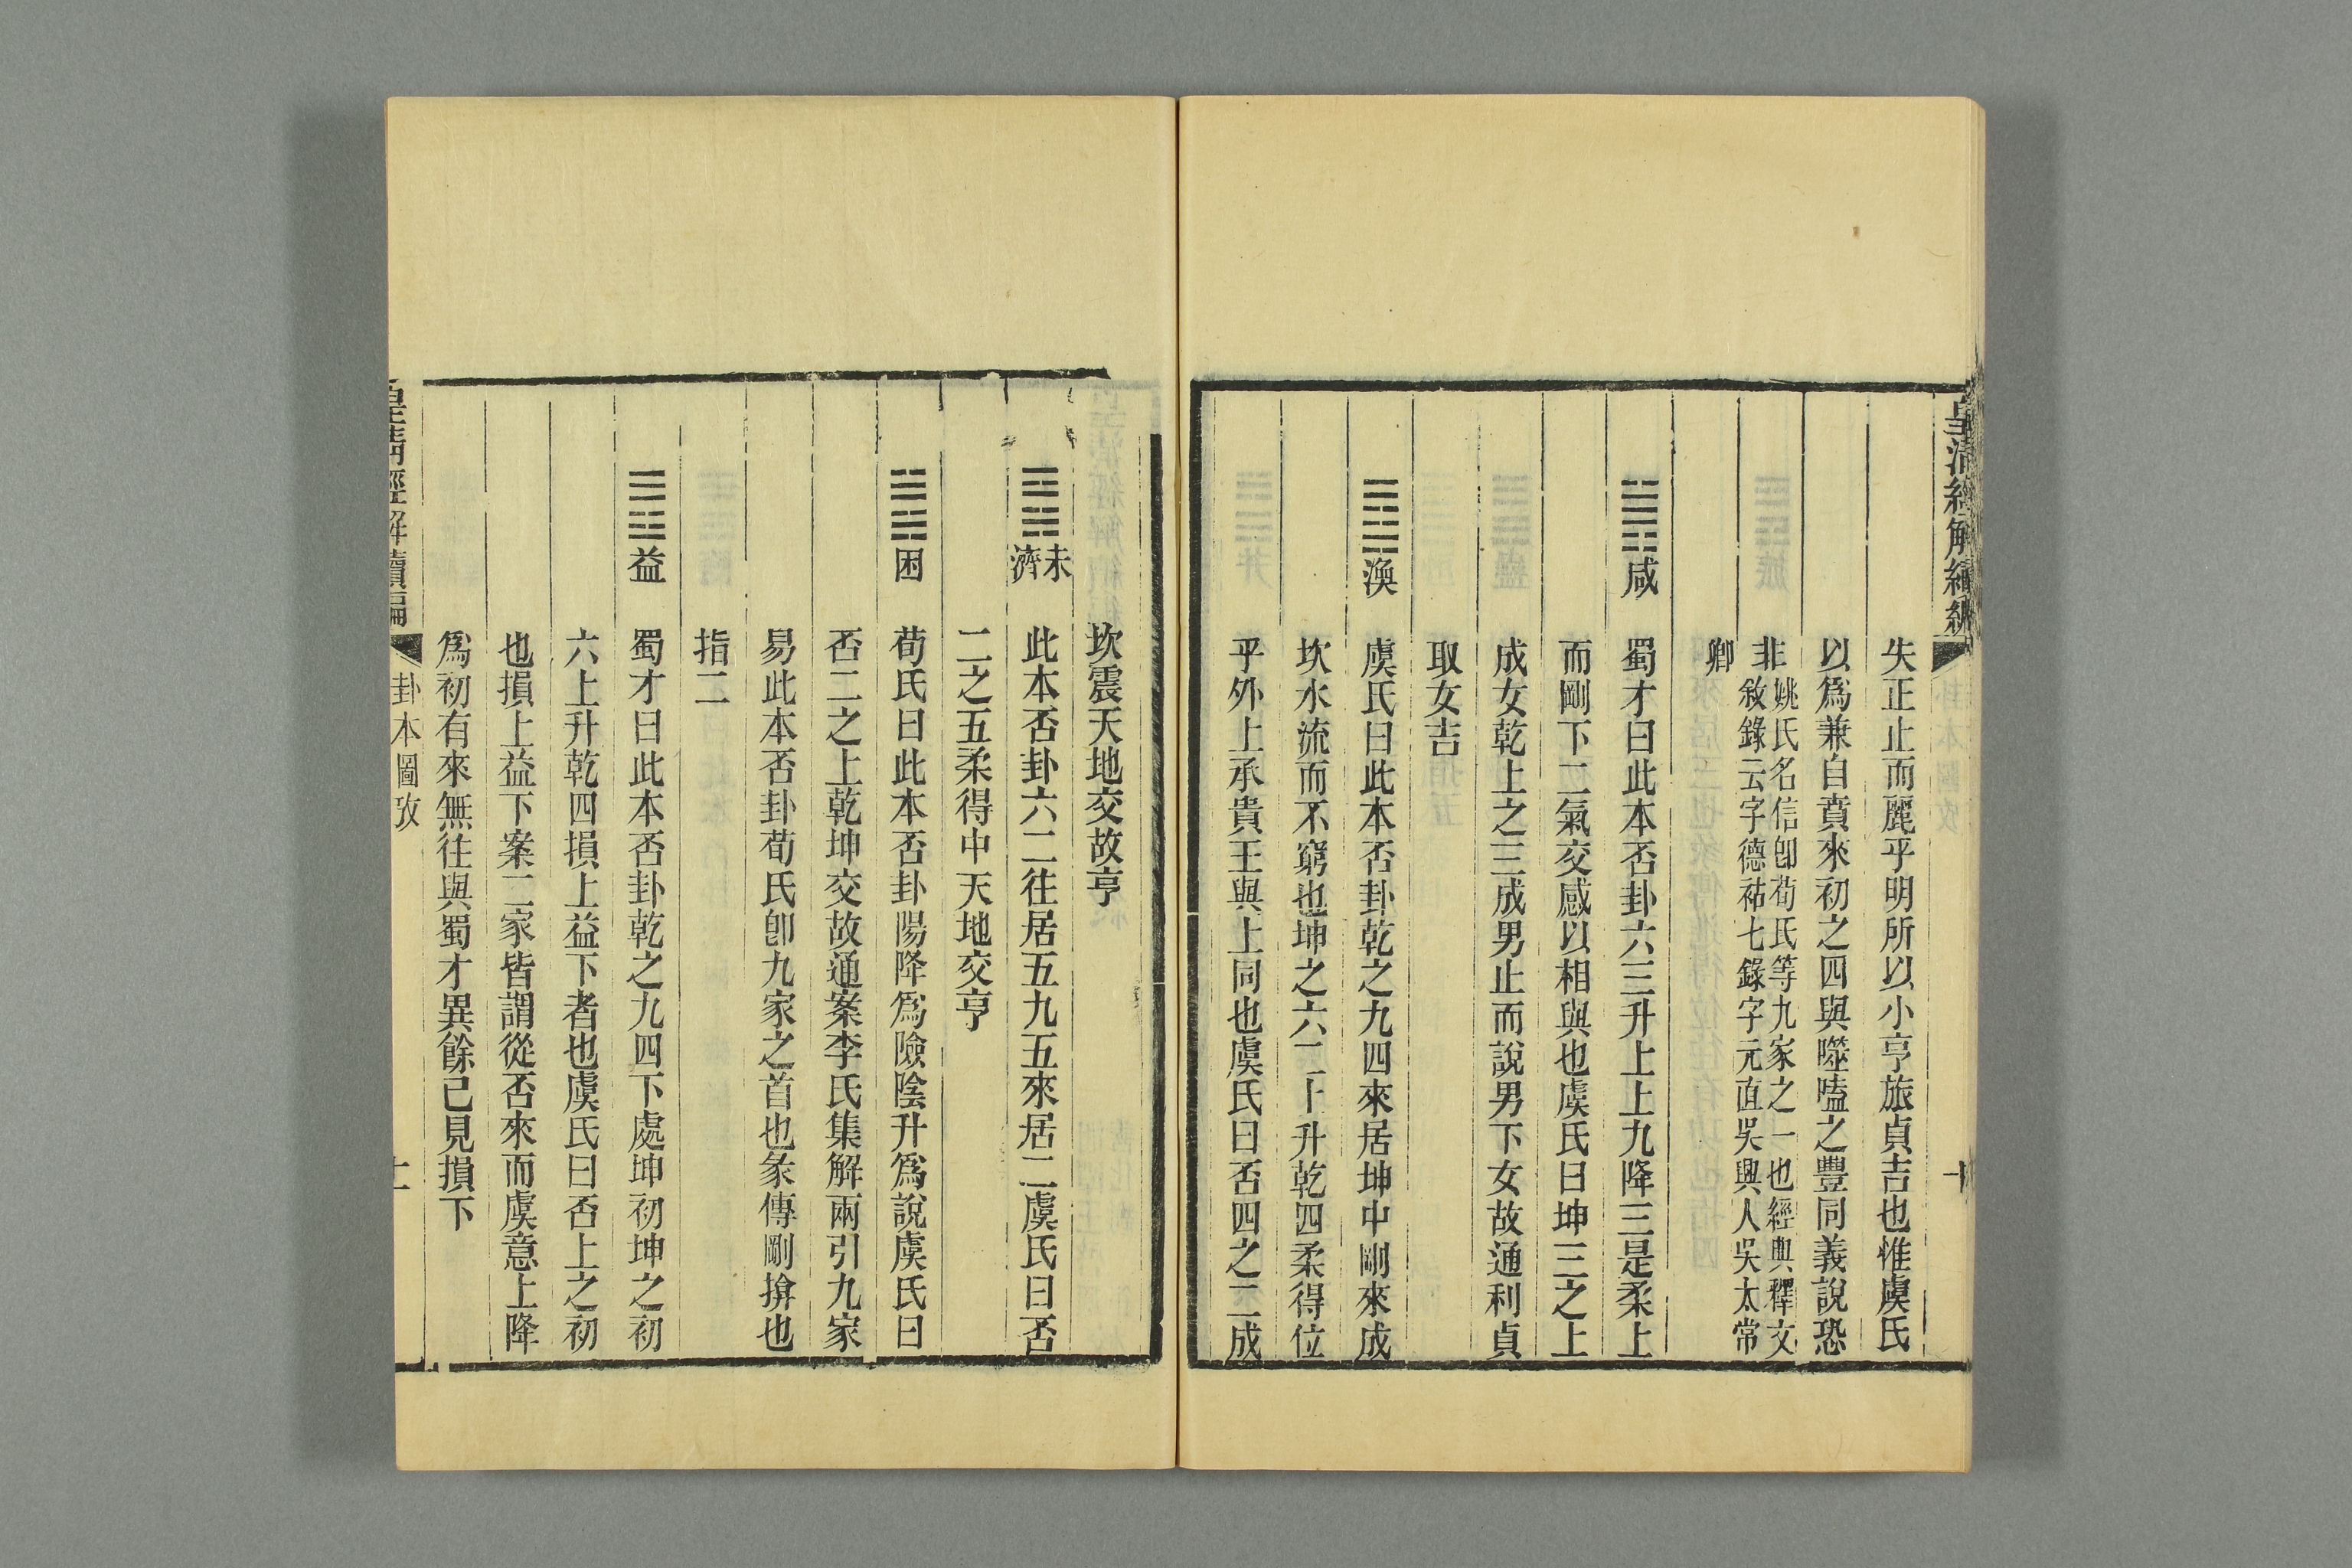 皇清經解續編
十
失正止而麗乎明所以小亨旅貞吉也惟虞氏
以爲兼自賁來初之四與噬嗑之豐同義說恐
非姚氏名信卽荀氏等九家之一也經典釋文
敘錄云字德祐七錄字元直吳興人吳太常
卿
䷞咸 蜀才曰此本否卦六三升上上九降三是柔上
而剛下二氣交感以相與也虞氏曰坤三之上
成女乾上之三成男止而說男下女故通利貞
取女吉
䷺渙 虞氏曰此本否卦乾之九四來居坤中剛來成
坎水流而不窮也坤之六二上升乾四柔得位
乎外上承貴王與上同也虞氏曰否四之二成
坎震天地交故亨
䷿未濟 此本否卦六二往居五九五來居二虞氏曰否
二之五柔得中天地交亨
䷮困 荀氏曰此本否卦陽降爲險陰升爲說虞氏曰
否二之上乾坤交故通案李氏集解兩引九家
易此本否卦荀氏卽九家之首也彖傳剛揜也
指二
䷩益 蜀才曰此本否卦乾之九四下處坤初坤之初
六上升乾四損上益下者也虞氏曰否上之初
也損上益下案二家皆謂從否來而虞意上降
爲初有來無往與蜀才異餘已見損下
皇清經解續編
卦本圖攷